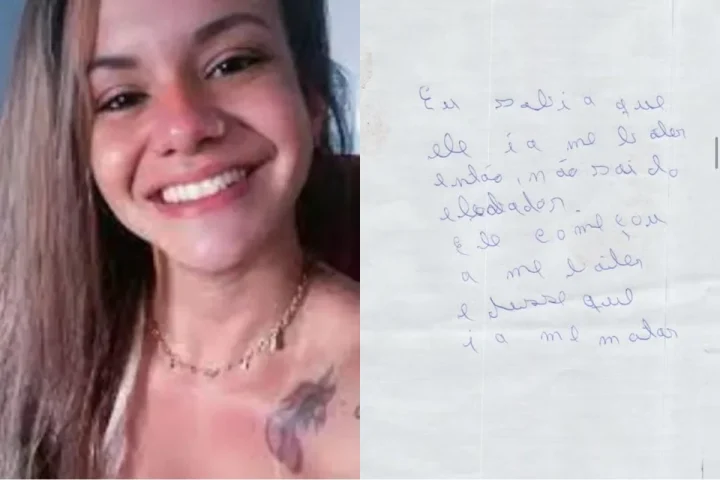 Eu sabia que
ele ia me bater
então, não saí do
elevador.
Ele começou
a me bater
e disse que
ia me matar